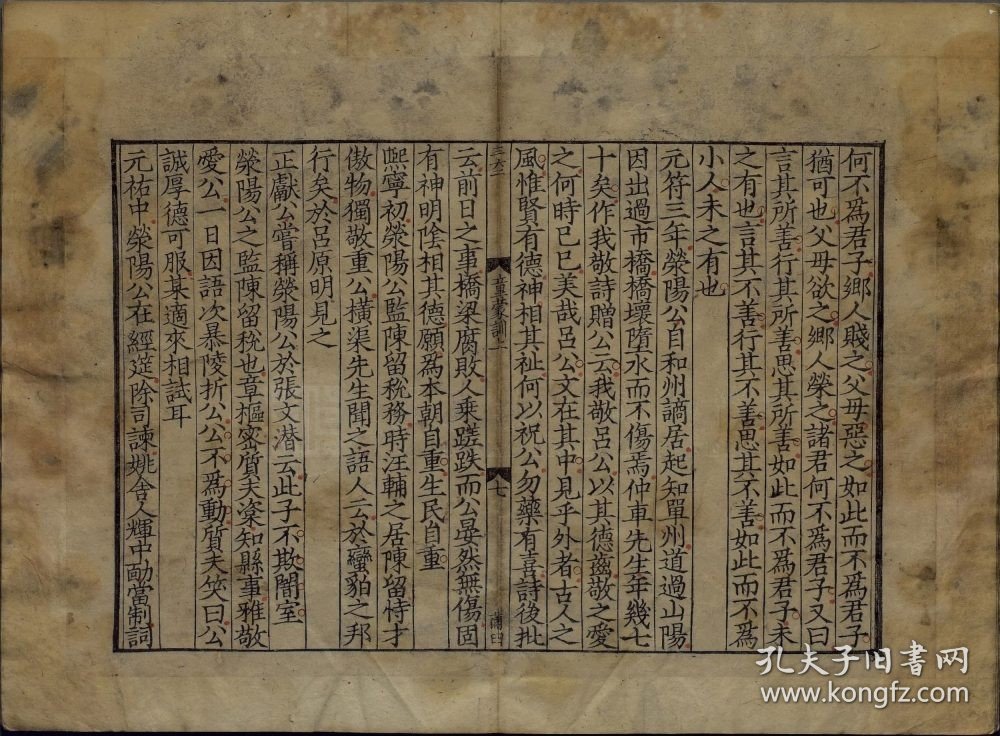 何不爲君子鄉人賤之父母惡之如此而不爲君子
猶可也父母欲之鄉人榮之諸君何不爲君子又曰
言其所善行其所善思其所善如此而不爲君子未
之有也言其不善行其不善思其不善如此而不爲
小人未之有也
元符三年滎陽公自和州謫居起知單州道過山陽
因出過市橋橋壞墮水而不傷焉仲車先生年幾七
十矣作我敬詩贈公云我敬呂公以其德齒敬之愛
之何時已已美哉呂公文在其中見乎外者古人之
風惟賢有德神相其祉何以祝公勿藥有喜詩後批
童蒙訓上
七
云前日之事橋梁腐敗人乘蹉跌而公晏然無傷固
有神明陰相其德願爲本朝自重生民自重
熙寧初滎陽公監陳留稅務時汪輔之居陳留恃才
傲物獨敬重公橫渠先生聞之語人云於蠻貊之邦
行矣於呂原明見之
正獻公嘗稱滎陽公於張文潛云此子不欺闇室
滎陽公之監陳留稅也章樞密質夫楶知縣事雅敬
愛公一日因語次暴陵折公公不爲動質夫笑曰公
誠厚德可服某適來相試耳
元祐中滎陽公在經筵除司諫姚舍人輝中勔當制詞
孔夫子旧书网
www.kongfz.com